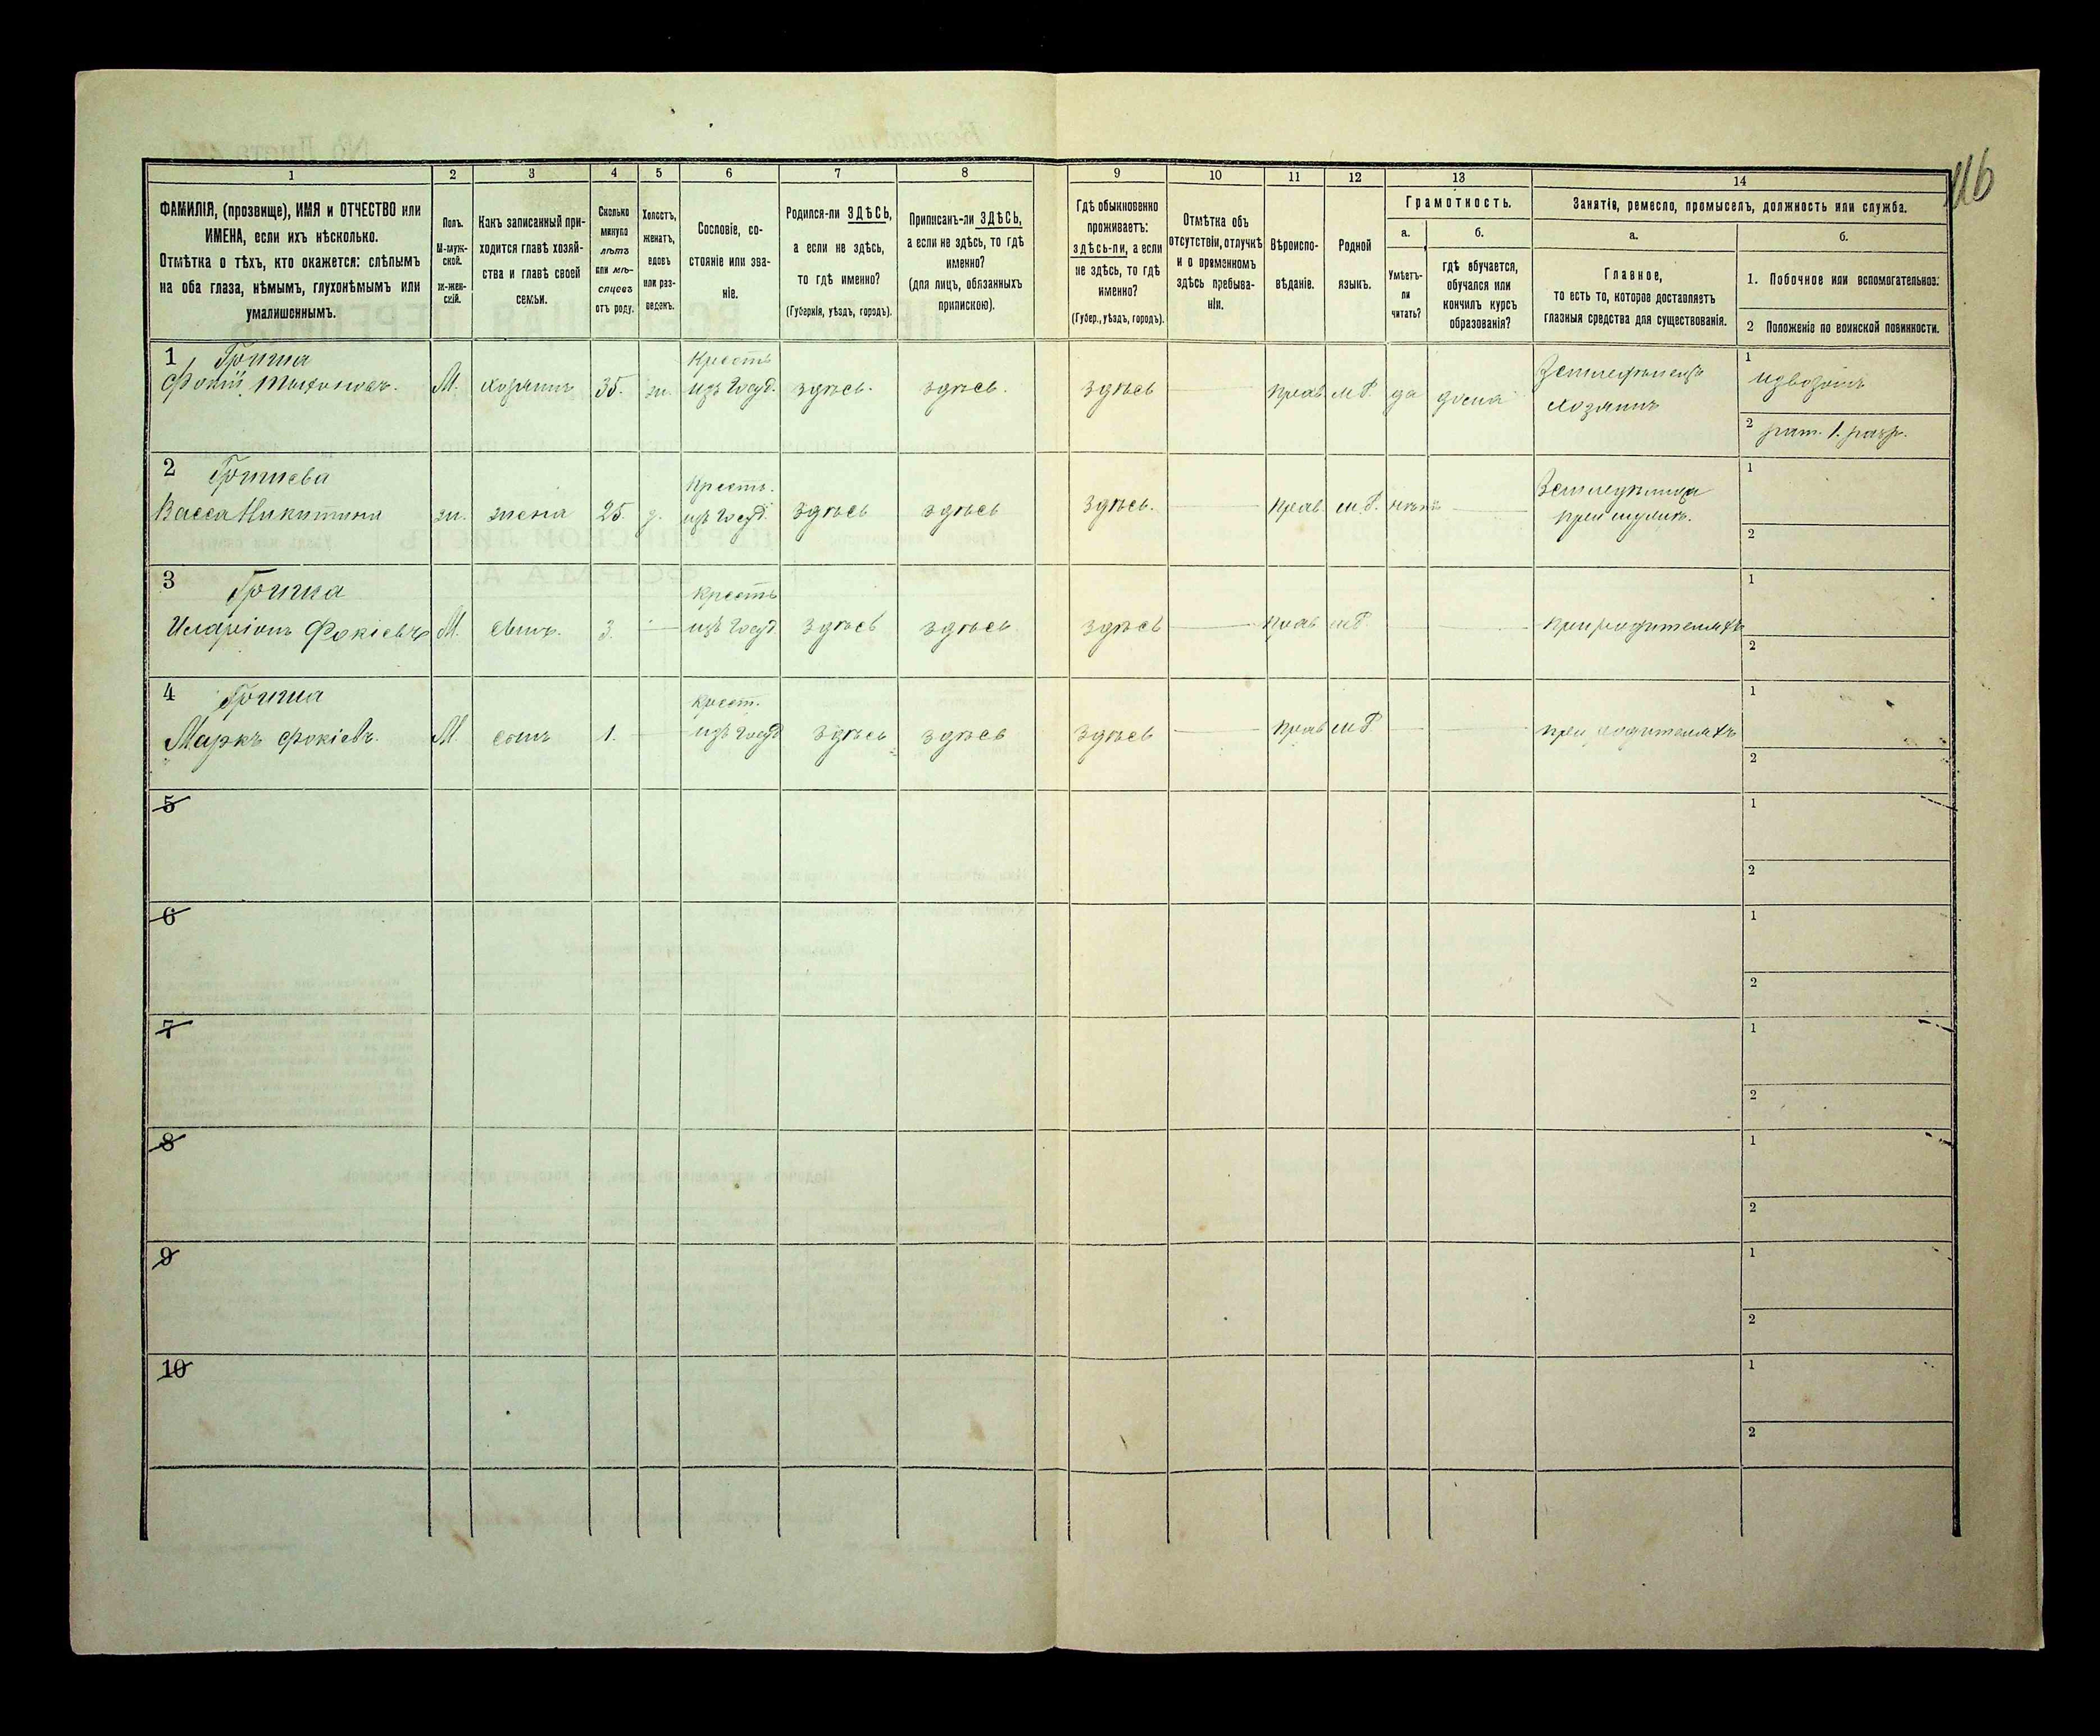 116
1 2 3 4 5 6 7 8 9 10 11 12 13 14
ФАМИЛІЯ, (прозвище), ИМЯ и ОТЧЕСТВО или
ИМЕНА, если ихъ нѣсколько.
Отмѣтка о тѣхъ, кто окажется: слѣпымъ
на оба глаза, нѣмымъ, глухонѣмымъ или
умалишеннымъ.
Полъ.
М-муж-
ской.
Ж-жен-
скій.
Какъ записанный при-
ходится главѣ хозяй-
ства и главѣ своей
семьи.
Сколько
минуло
лѣтъ
или мѣ-
сяцевъ
отъ роду.
Холостъ,
женатъ,
вдовъ
или раз-
веденъ.
Сословіе, со-
стояніе или зва-
ніе.
Родился-ли ЗДѢСЬ,
а если не здѣсь,
то гдѣ именно?
(Губернія, уѣздъ, городъ).
Приписанъ-ли ЗДѢСЬ,
а если не здѣсь, то гдѣ
именно?
(для лицъ, обязанныхъ
припискою).
Гдѣ обыкновенно
проживаетъ:
здѣсь-ли, а если
не здѣсь, то гдѣ
именно?
(Губер., уѣздъ, городъ).
Отмѣтка объ
отсутствіи, отлучкѣ
и о временномъ
здѣсь пребыва-
ніи.
Вѣроиспо-
вѣданіе.
Родной
языкъ.
Грамотность.
а.
Умѣетъ-
ли
читать?
б.
гдѣ обучается,
обучался или
кончилъ курсъ
образованія?
Занятіе, ремесло, промыселъ, должность или служба.
а.
Главное,
то есть то, которое доставляетъ
главныя средства для существованія.
б.
1. Побочное или вспомогательное.
2 Положеніе по воинской повинности.
1 Гриша
Фокій
М. 35. ж.
Крестъ
изъ Госуд. здѣсь. здѣсь. здѣсь Прав м.Р. да дома
хозяинъ
1 извозомъ
2 рат. 1. разр.
2 Гришева
Васса Никитина ж. жена 25. з.
Крестъ.
изъ Госуд. здѣсь здѣсь здѣсь. Прав м.Р. нѣтъ
при мужѣ.
1
2
3 Гриша
Иларіонъ Фокіевъ М. сынъ. 3.
Крестъ
изъ Госуд здѣсь здѣсь здѣсь Прав мР при родителяхъ
1
2
4 Гриша
Маркъ Фокіевъ. М. сынъ 1.
Крест.
изъ Госуд здѣсь здѣсь здѣсь Прав мР. при родителяхъ
1
2
5
1
2
6
1
2
7
1
2
8
1
2
9
1
2
10
1
2